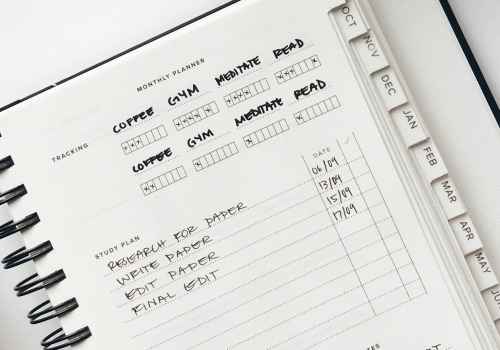 MONTHLY PLANNER
TRACKING
COFFEE GYM MEDITATE READ
COFFEE GYM MEDITATE READ
STUDY PLAN
DATE
RESEARCH FOR PAPER 06/09
WRITE PAPER 13/09
EDIT PAPER 15/09
FINAL EDIT 17/09
OCT
NOV
DEC
JAN
FEB
MAR
APR
MAY